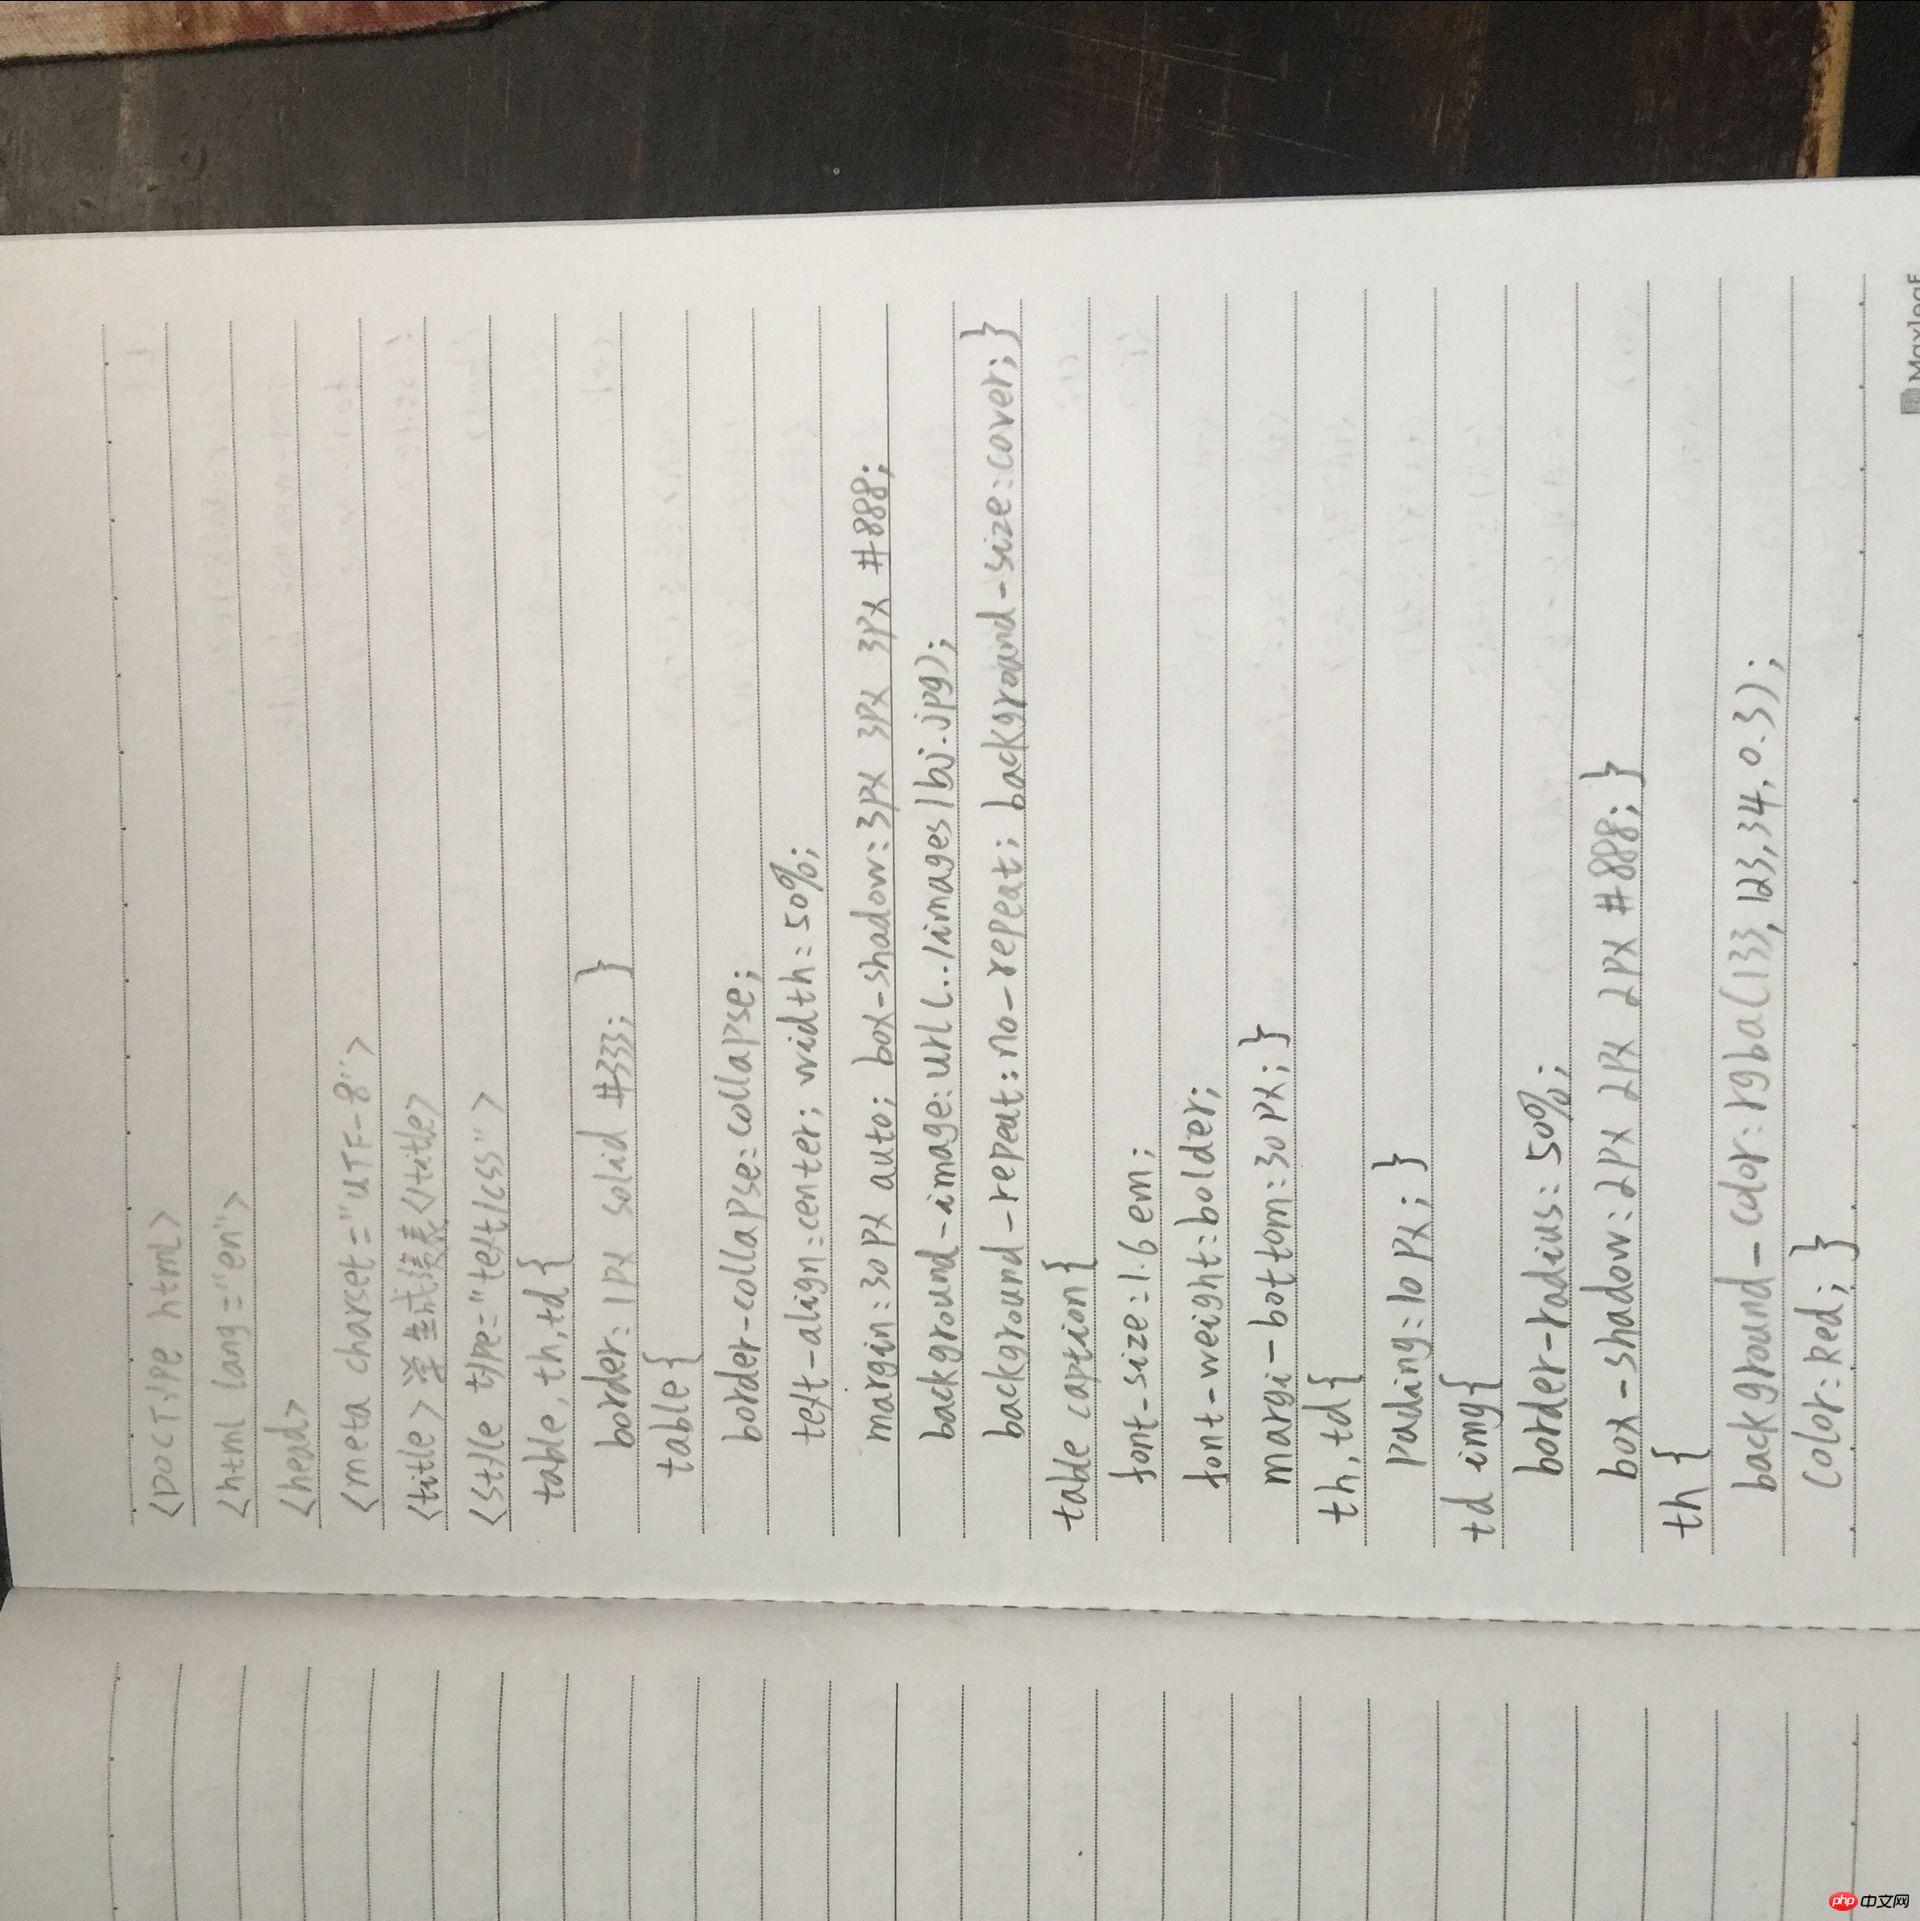 <DOCTYPE html>
<html lang="en">
<head>
<meta charset="UTF-8">
<title>学生成绩表</title>
<style type="text/css">
table,th,td{
border:1px solid #333; }
table{
border-collapse:collapse;
text-align:center; width:50%;
margin:30px auto; box-shadow:3px 3px 3px #888;
background-image:url(../images/bj.jpg);
background-repeat:no-repeat; background-size:cover;}
table caption{
font-size:1.6em;
font-weight:bolder;
margi-bottom:30px;}
th,td{
pading:10px;}
td img{
border-radius:50%;
box-shadow:2px 2px 2px #888;}
th{
background-color:rgba(133,123,34,0.3);
color:red;}
Maxleaf
php 中文网